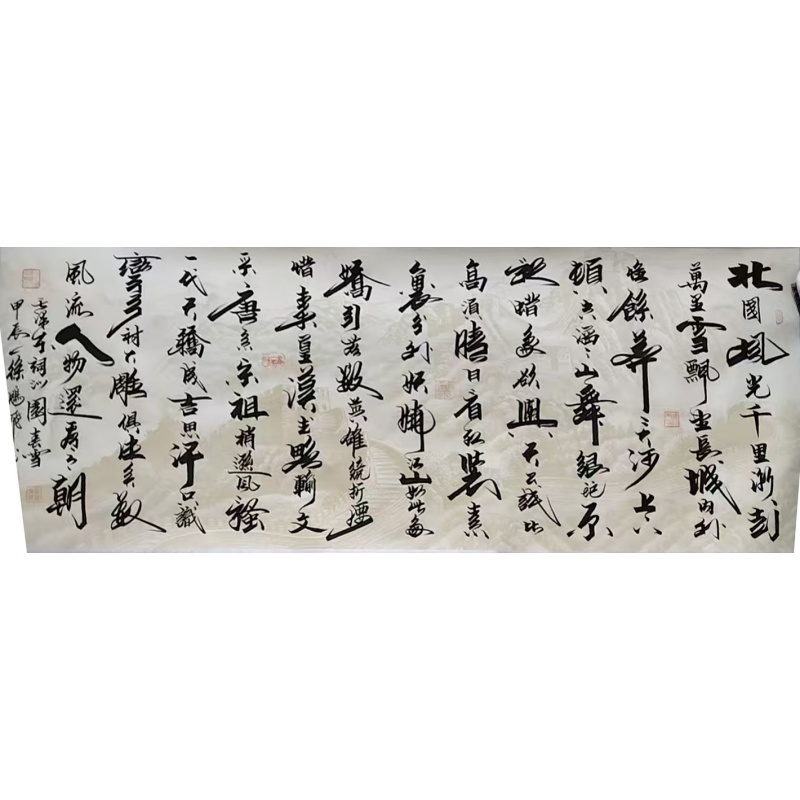 北國風光千里冰封
萬里雪飄望長城內外
惟餘莽莽大河上下
頓失滔滔山舞銀蛇原
馳蠟象欲與天公試比
高須晴日看紅裝素
裹分外妖嬈江山如此多
嬌引無數英雄競折腰
惜秦皇漢武略輸文
采唐宗宋祖稍遜風騷
一代天驕成吉思汗只識
彎弓射大雕俱往矣數
風流人物還看今朝
毛澤東詞沁園春雪
甲辰